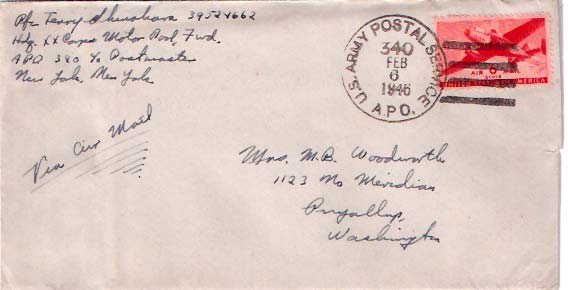 Pfc Terry Shirahara 39524662
Hdq. XX Corps Motor Pool, Fwd.
APO 340 c/o Postmaster
New York, New York
U.S. ARMY POSTAL SERVICE
340
FEB
6
1946
A.P.O.
AIR MAIL
6
UNITED STATES OF AMERICA
Via Air Mail
Mrs. M.B. Woodworth
1123 No Meridian
Puyallup,
Washington